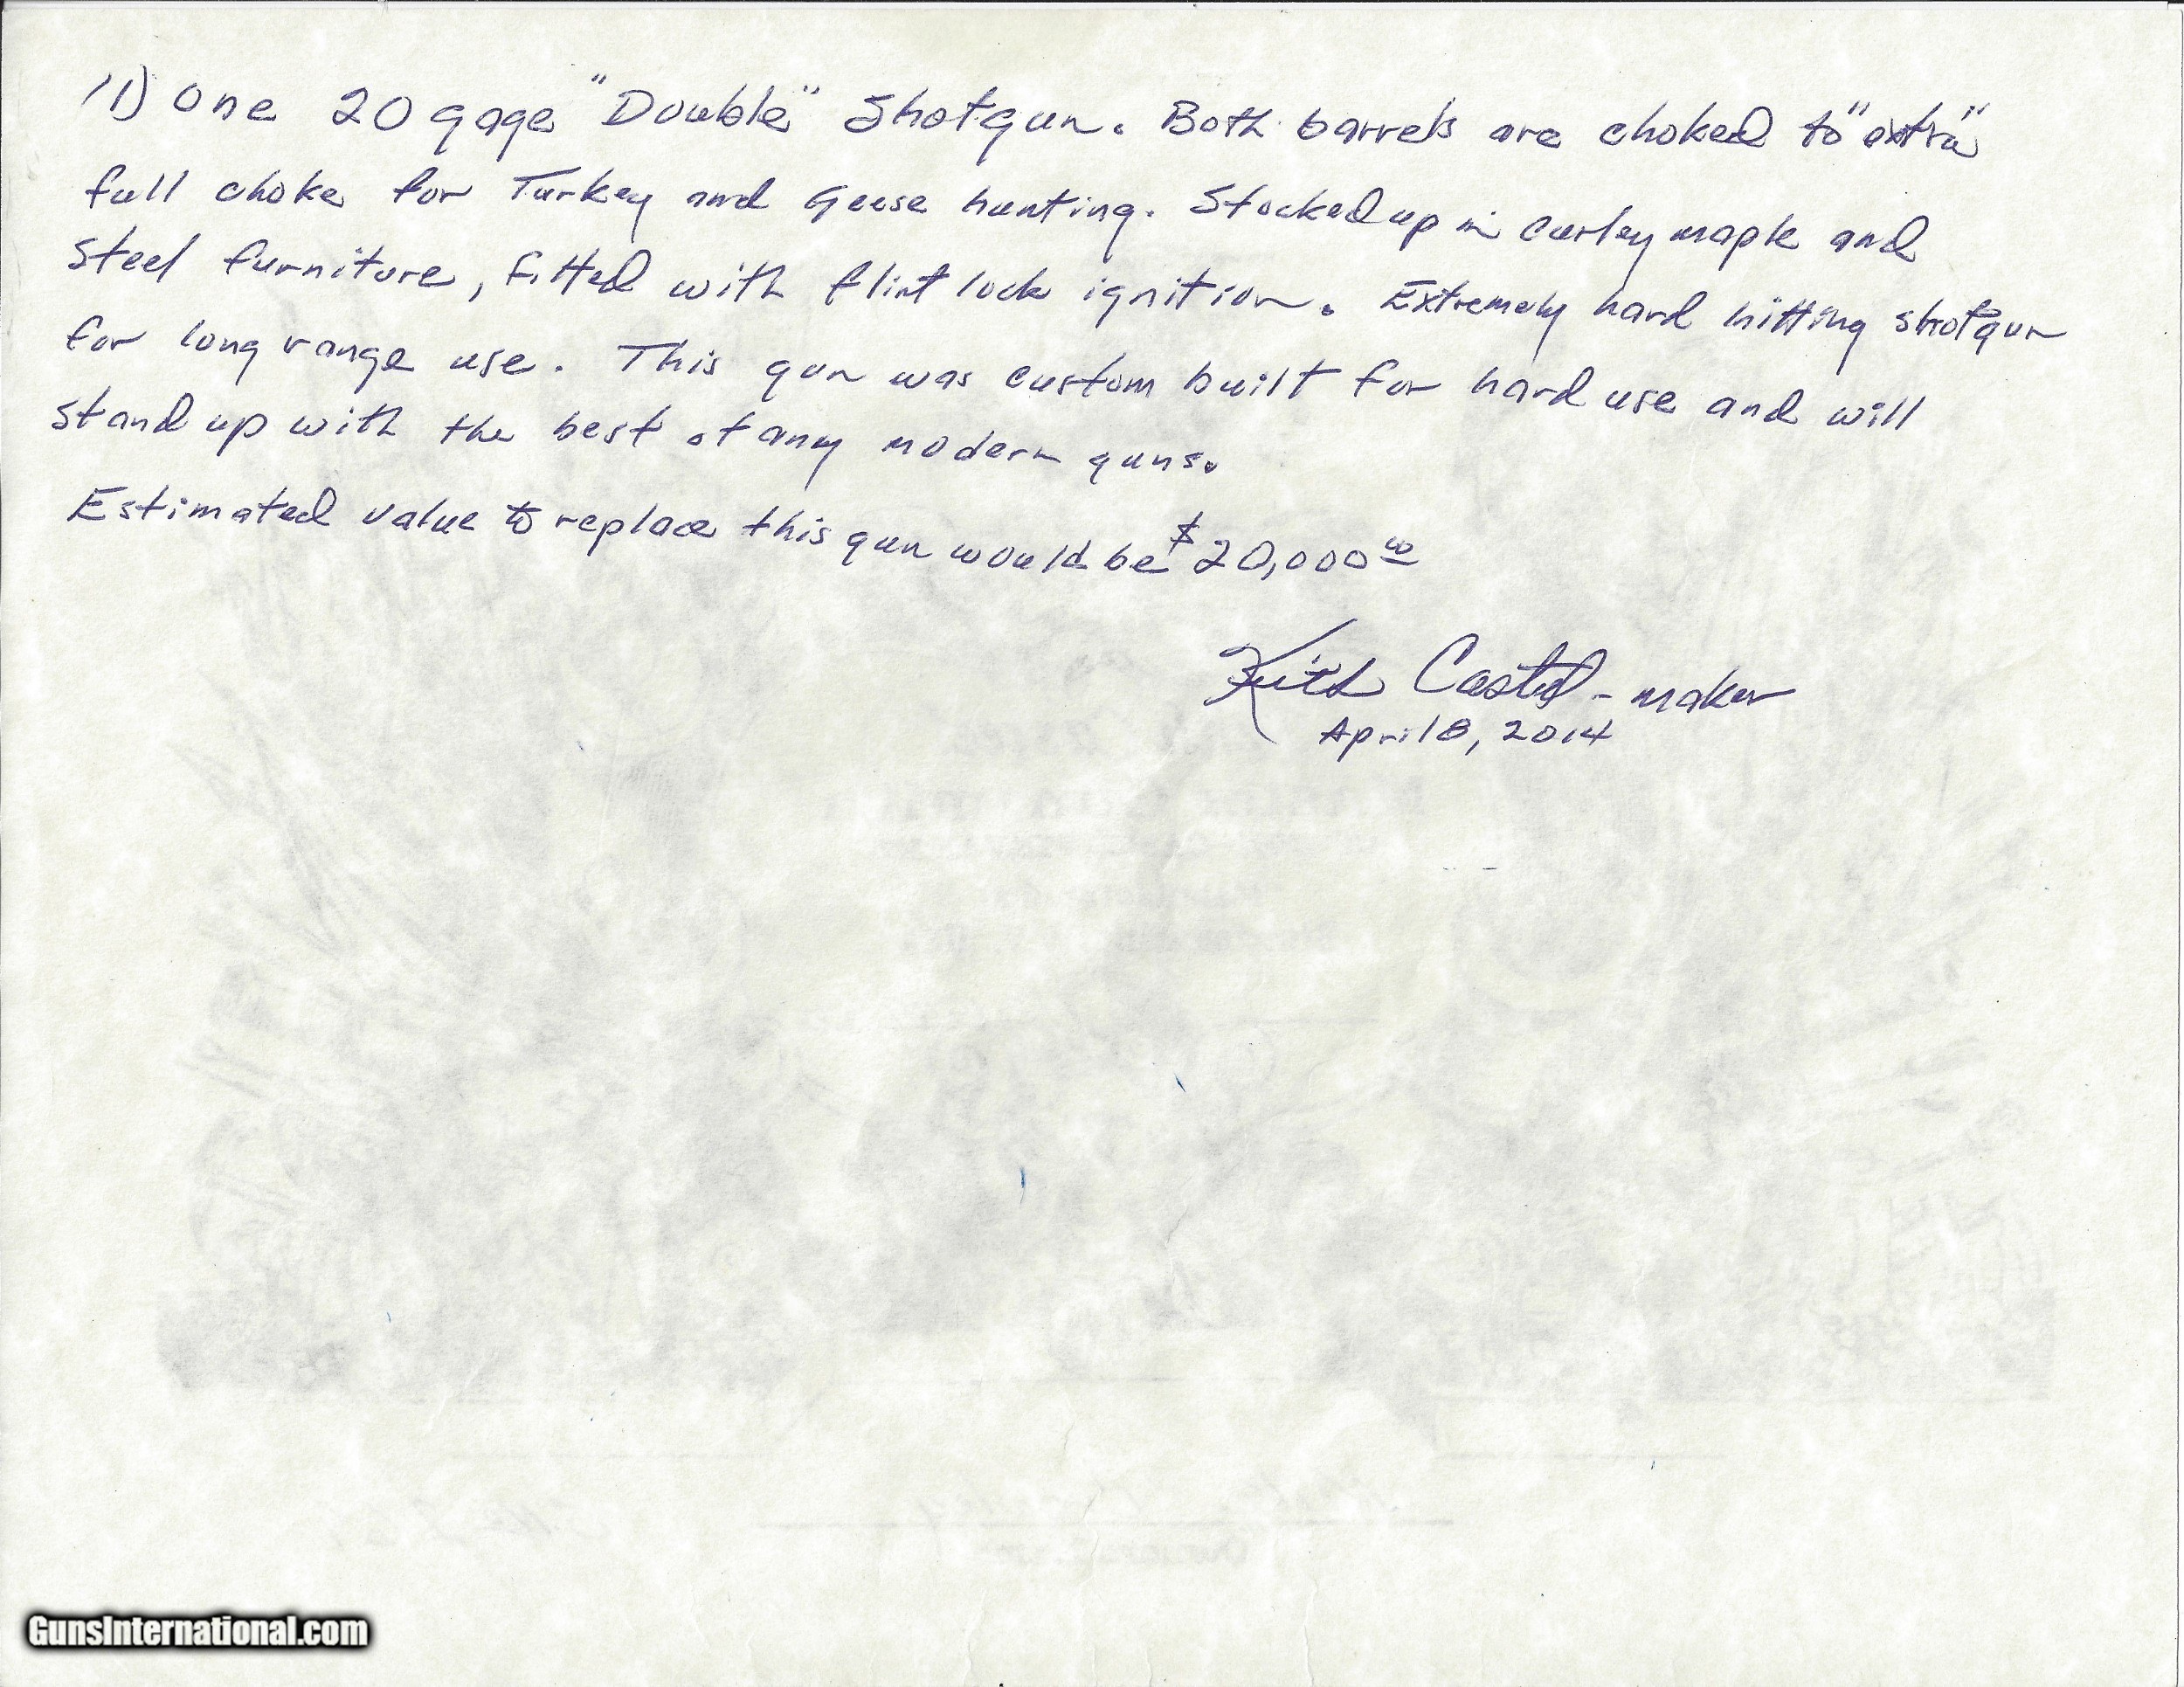 (1) One 20 gage "Double" Shotgun. Both barrels are choked to "extra"
full choke for Turkey and Geese hunting. Stocked up in curley maple and
steel furniture, fitted with flint lock ignition. Extremely hard hitting shotgun
for long range use. This gun was custom built for hard use and will
stand up with the best of any modern guns.
Estimated value to replace this gun would be $20,000.00
Keith Casteel - maker
April 8, 2014
GunsInternational.com